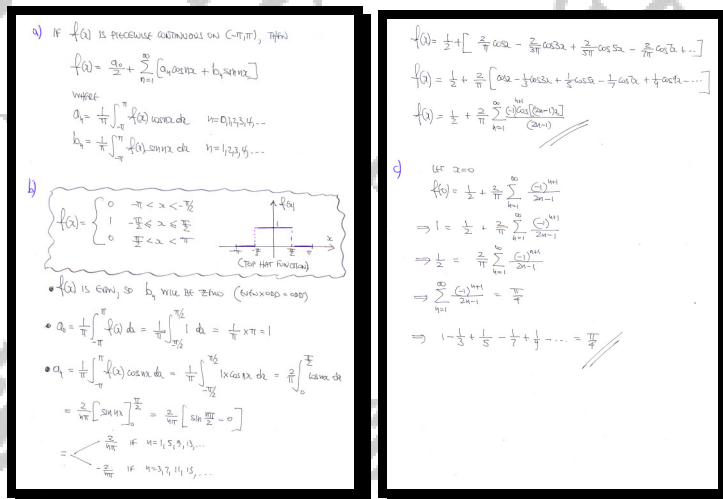 a) IF f(x) IS PIECEWISE CONTINUOUS ON (-π,π), THEN
f(x) = a₀/2 + ∑_{n=1}^{∞} [aₙ cos nx + bₙ sin nx]
WHERE
aₙ = 1/π ∫_{-π}^{π} f(x) cos nx dx n=0,1,2,3,4,...
bₙ = 1/π ∫_{-π}^{π} f(x) sin nx dx n=1,2,3,4,...
b)
f(x) = { 0 -π < x < -π/2
1 -π/2 ≤ x ≤ π/2
0 π/2 < x < π
f(x)
1
-π -π/2 π/2 π x
(TOP HAT FUNCTION)
• f(x) IS EVEN, SO bₙ WILL BE ZERO (EVEN×ODD=ODD)
• a₀ = 1/π ∫_{-π}^{π} f(x) dx = 1/π ∫_{-π/2}^{π/2} 1 dx = 1/π × π = 1
• aₙ = 1/π ∫_{-π}^{π} f(x) cos nx dx = 1/π ∫_{-π/2}^{π/2} 1×cos nx dx = 2/π ∫_{0}^{π/2} cos nx dx
= 2/nπ [sin nx]_{0}^{π/2} = 2/nπ [sin nπ/2 - 0]
= 2/nπ IF n=1,5,9,13,...
-2/nπ IF n=3,7,11,15,...
f(x) = 1/2 + [2/π cos x - 2/3π cos 3x + 2/5π cos 5x - 2/7π cos 7x + ...]
f(x) = 1/2 + 2/π [cos x - 1/3 cos 3x + 1/5 cos 5x - 1/7 cos 7x + 1/9 cos 9x - ...]
f(x) = 1/2 + 2/π ∑_{n=1}^{∞} (-1)^{n+1} cos[(2n-1)x]/(2n-1)
c) LET x=0
f(0) = 1/2 + 2/π ∑_{n=1}^{∞} (-1)^{n+1}/2n-1
⇒ 1 = 1/2 + 2/π ∑_{n=1}^{∞} (-1)^{n+1}/2n-1
⇒ 1/2 = 2/π ∑_{n=1}^{∞} (-1)^{n+1}/2n-1
⇒ ∑_{n=1}^{∞} (-1)^{n+1}/2n-1 = π/4
⇒ 1 - 1/3 + 1/5 - 1/7 + 1/9 - .... = π/4